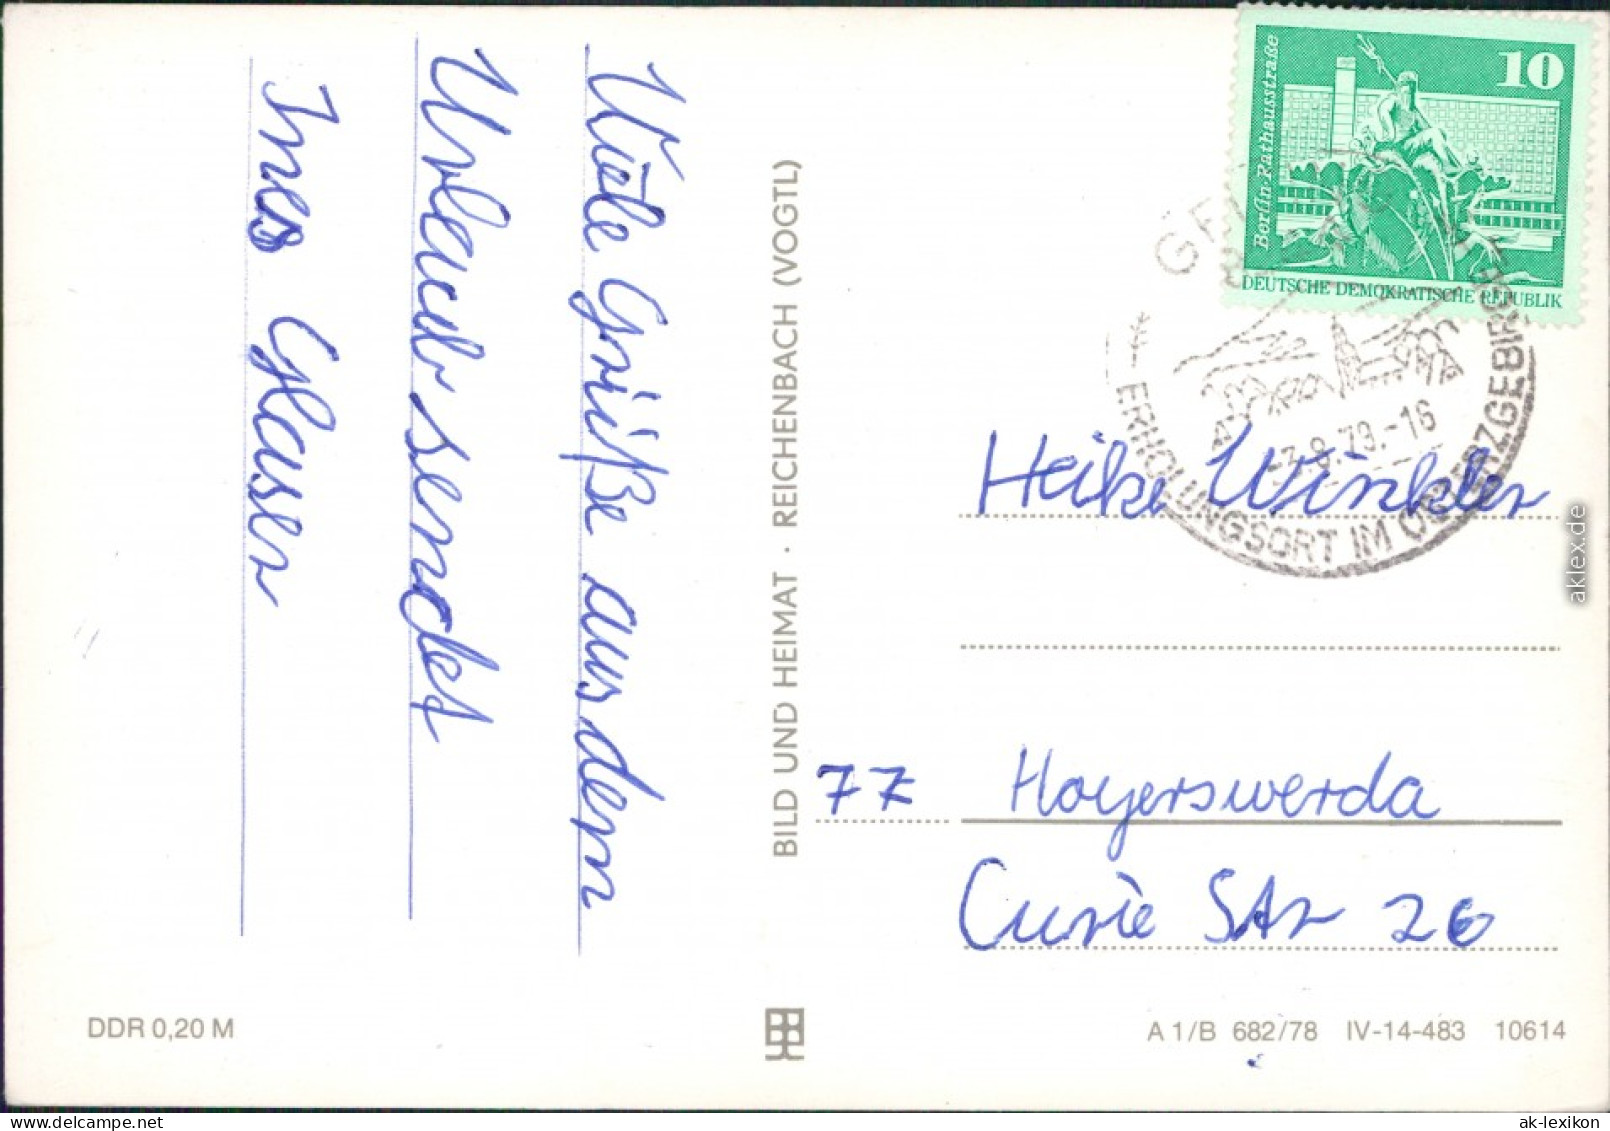 Viele Grüße aus dem
Urlaub sendet
Ines Glaser
BILD UND HEIMAT · REICHENBACH (VOGTL)
10
Berlin·Rathausstraße
DEUTSCHE DEMOKRATISCHE REPUBLIK
ERHOLUNGSORT IM OSTERZGEBIRGE
-3.8.79.-16
Heike Winkler
77 Hoyerswerda
Curie Str 26
DDR 0,20 M
A 1/B 682/78 IV-14-483 10614
aklex.de
ak-lexikon